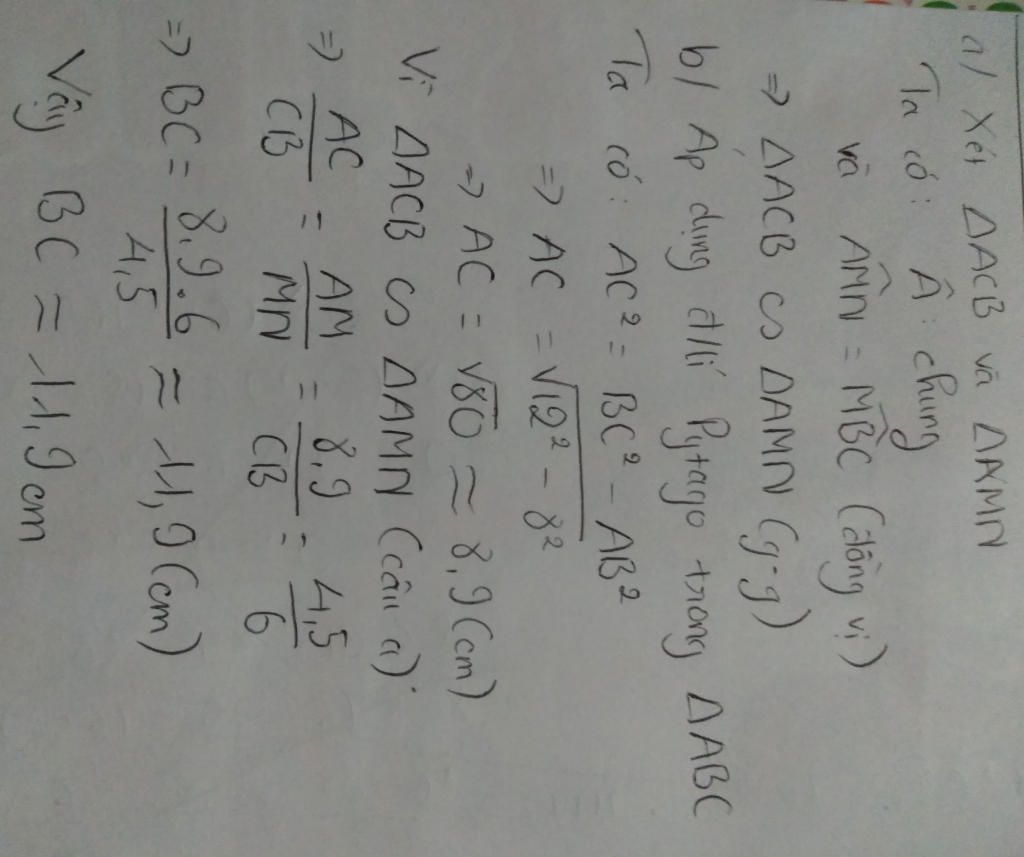 a/ Xét ΔACB và ΔAMN
Ta có: Â: chung
và AM̂N = MB̂C (đồng vị)
⇒ ΔACB ∽ ΔAMN (g-g)
b/ Áp dụng đ/lí Pytago trong ΔABC
Ta có: AC² = BC² - AB²
⇒ AC = √12² - 8²
⇒ AC = √80 ≈ 8,9 (cm)
Vì ΔACB ∽ ΔAMN (câu a)
⇒ AC/CB = AM/MN = 8,9/CB = 4,5/6
⇒ BC = 8,9.6/4,5 ≈ 11,9 (cm)
Vậy BC ≈ 11,9 cm